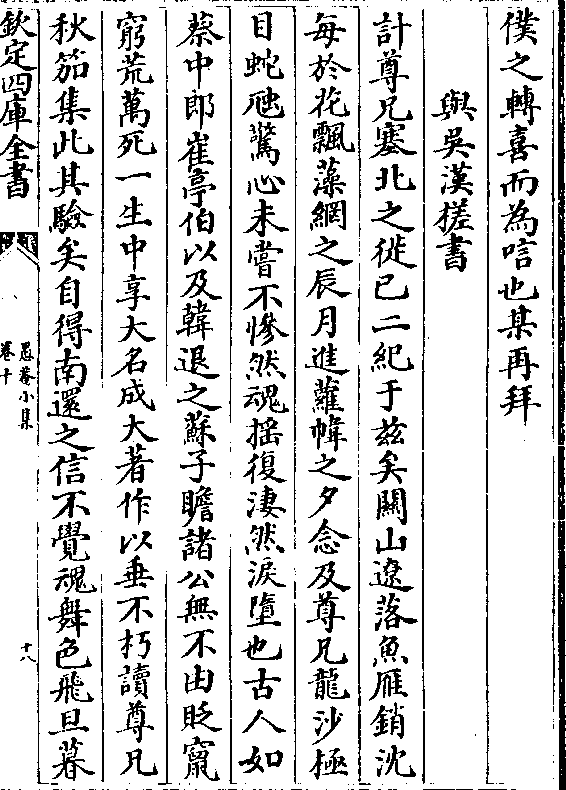 僕之轉喜而為唁也某再拜
與吳漢槎書
計尊兄塞北之徙已二紀于兹矣關山遼落魚雁銷沈
每於花飄藻網之辰月進蘿幃之夕念及尊兄龍沙極
目蛇虺驚心未嘗不慘然魂揺復淒然淚墮也古人如
蔡中郎崔亭伯以及韓退之蘇子瞻諸公無不由貶竄
窮荒萬死一生中享大名成大著作以垂不朽讀尊兄
秋笳集此其驗矣自得南還之信不覺魂舞色飛旦暮
欽定四庫全書
愚菴小集
卷十
十八